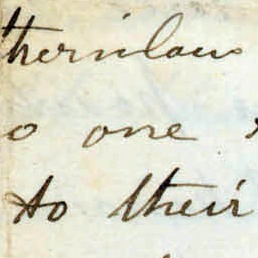 therinlaw
o one
to their